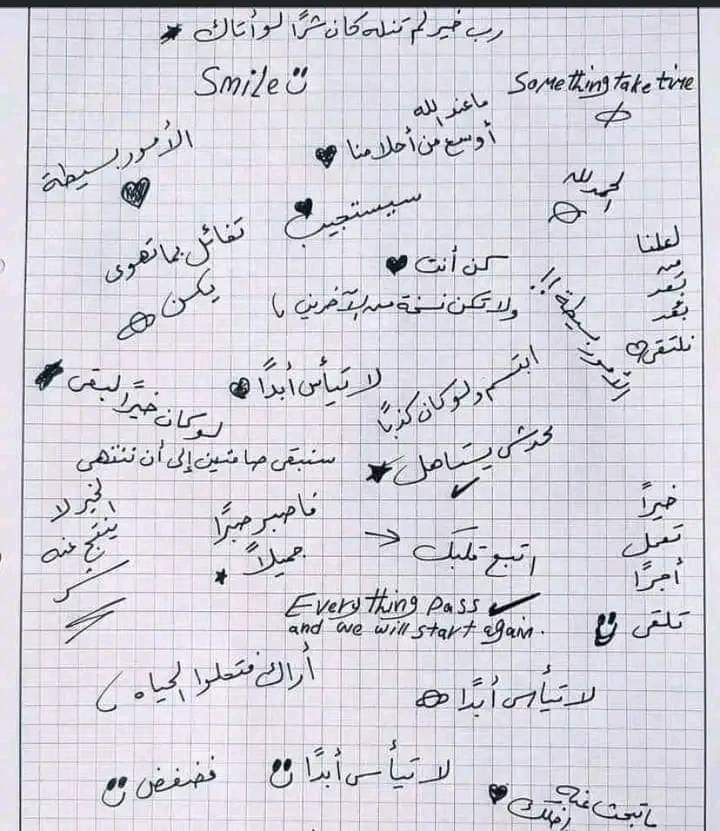 رب خير لم تنله كان شرًا لو أتاك
Smile
Something take time
ما عند الله
أوسع من أحلامنا
الأمور بسيطة
الحمد لله
سيستجيب
لعلنا
من
بعد
بعد
نلتقي
تفائل بما تهوى
يكن
كن أنت
ولا تكن نسخة من الآخرين
الأمور بسيطة!!
لا تيأس أبدًا
ابتسم ولو كان كذبًا
لو كان خيرًا لبقى
محدش يستاهل
سنبقى صامتين إلى أن ننتهي
خيرًا
تعمل
أجرًا
تلقى
فاصبر صبرًا
جميلاً
الخير لا
ينتج عنه
شر
اتبع قلبك
Everything pass
and we will start again.
أراك فتحلوا الحياه
لا تيأس أبدًا
لا تيأس أبدًا
فضفض
ما تبحث عنه